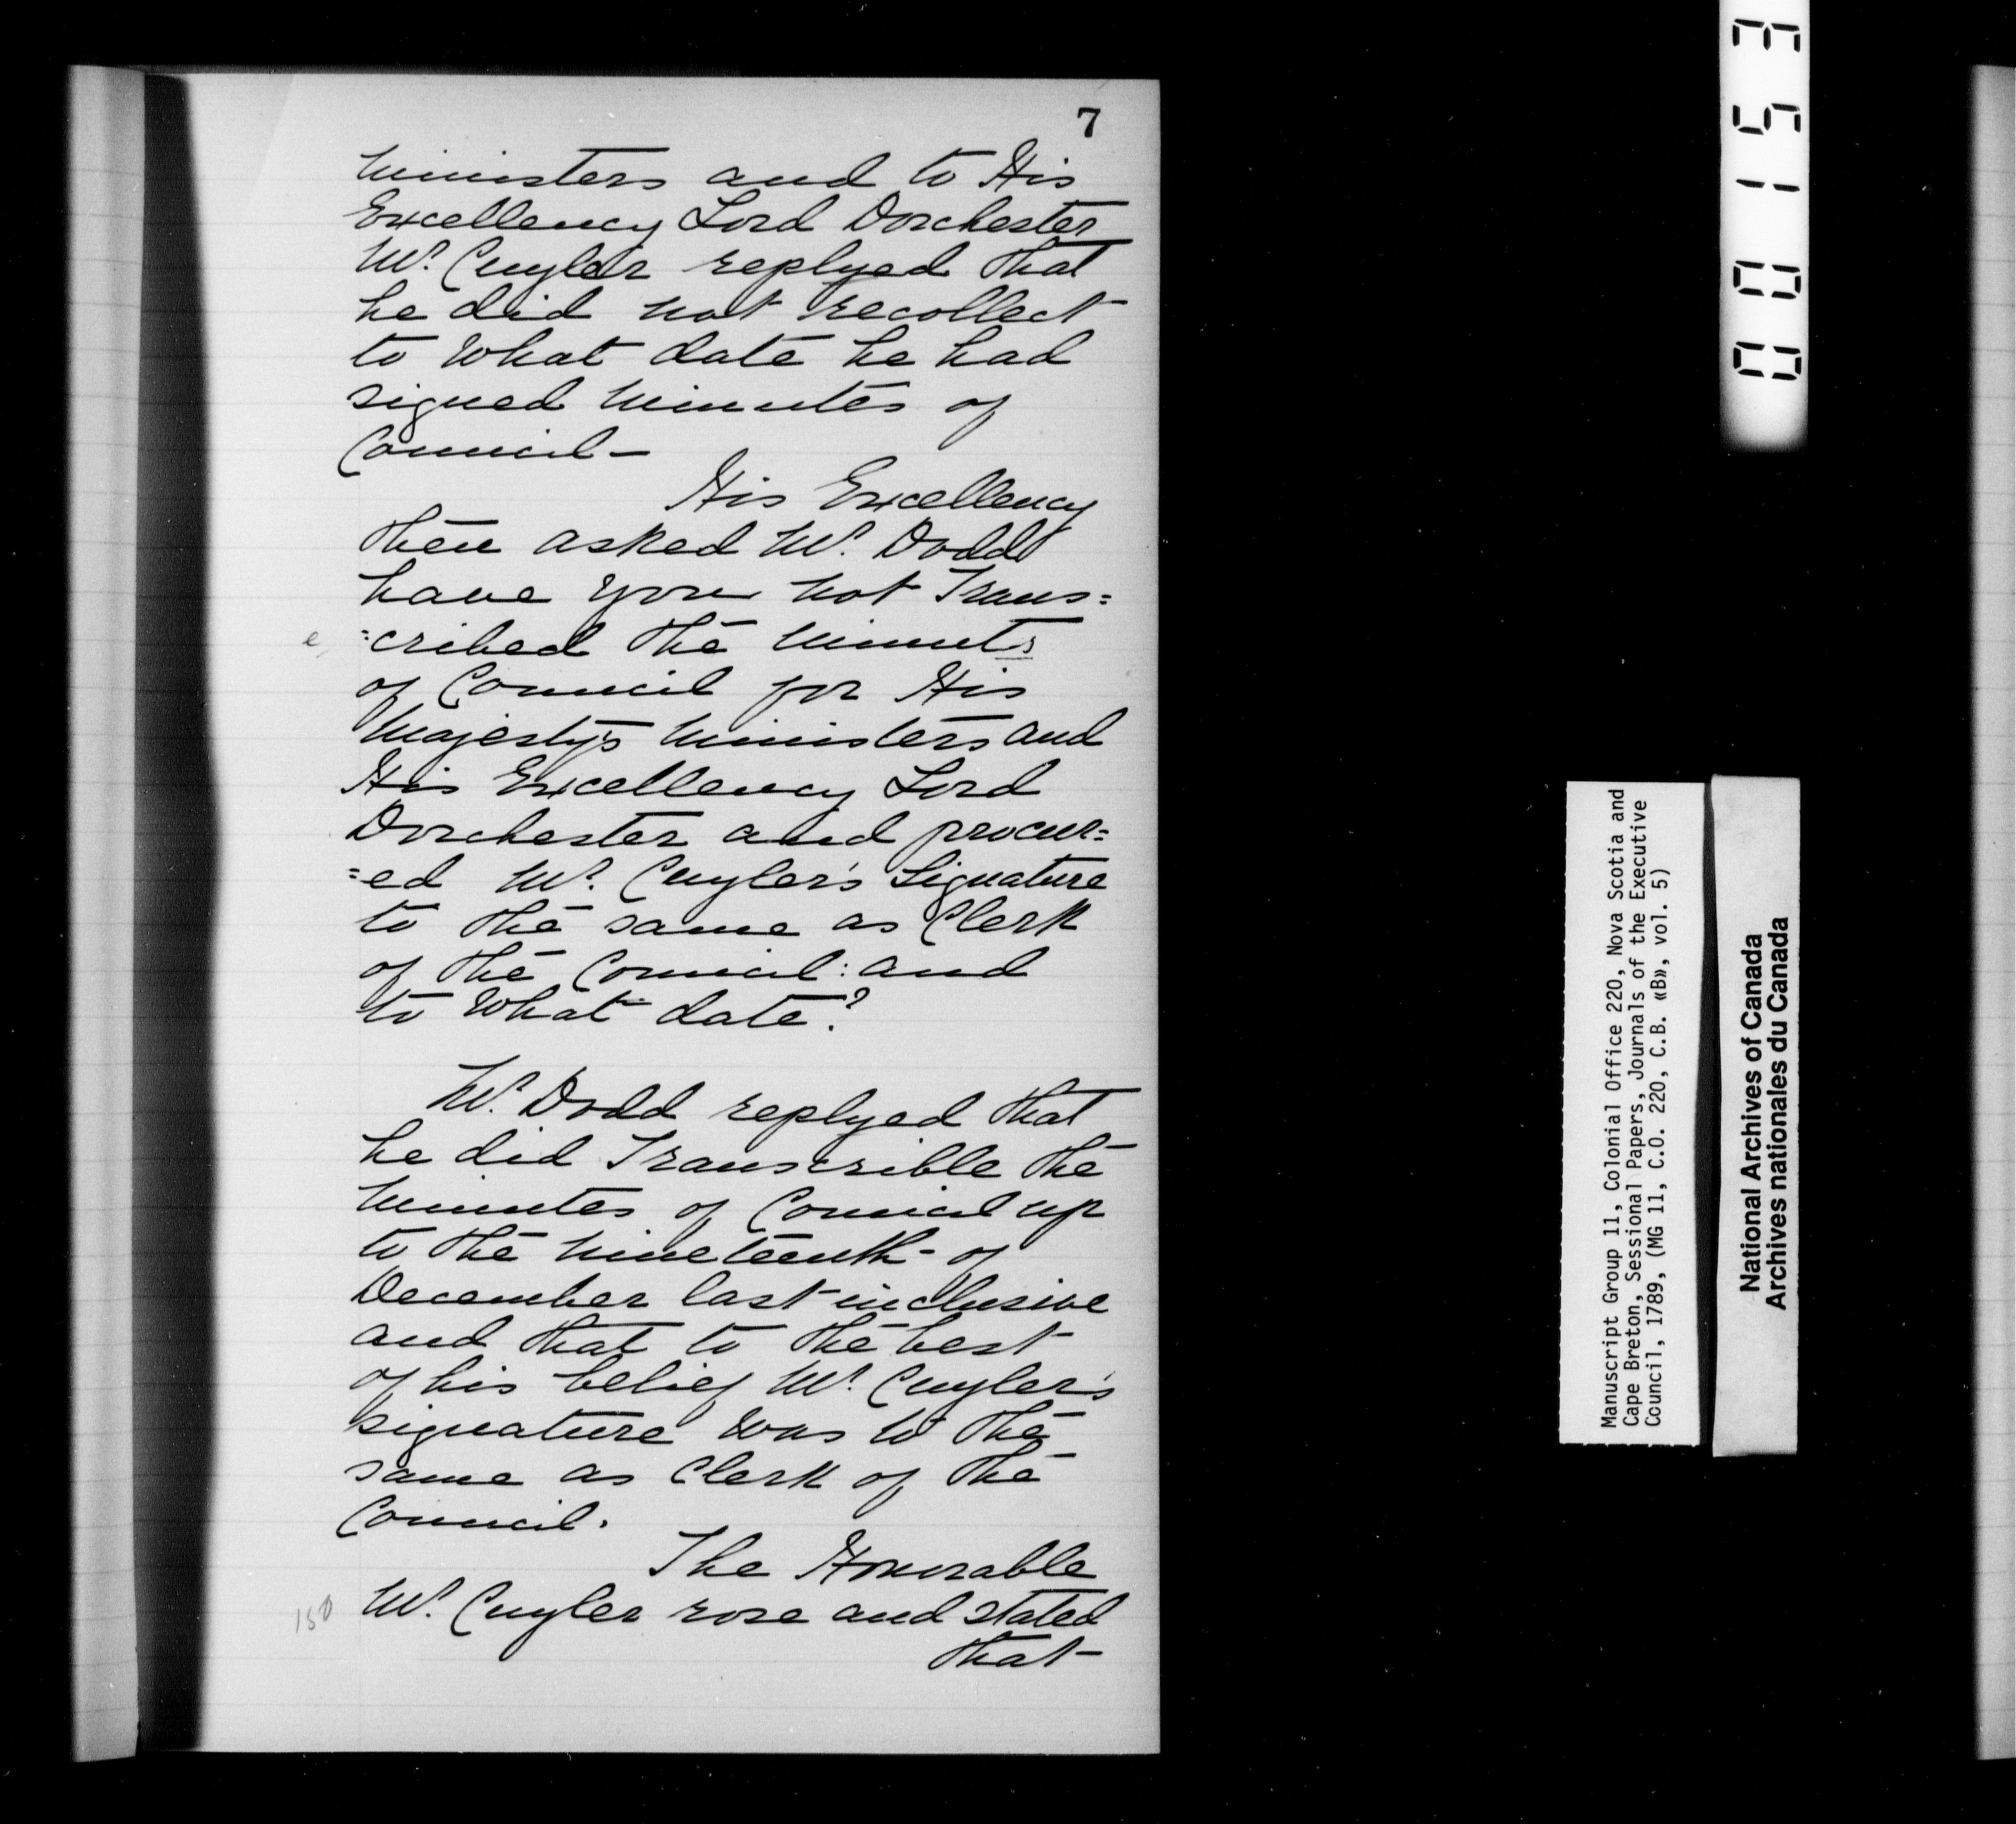 7
Ministers and to His
Excellency Lord Dorchester
Mr. Cuyler replyed that
he did not recollect
to What date he had
signed Minutes of
Council —
His Excellency
then asked Mr. Dodd
have you not Trans=
e =cribed the Minuts
of Council for His
Majesty's Ministers and
His Excellency Lord
Dorchester and procur=
=ed Mr. Cuyler's Signature
to the same as Clerk
of the Council: and
to What date?
Mr. Dodd replyed that
he did Transcrible the
Minutes of Council up
to the Nineteenth - of
December last inclusive
and that to the best
of his belief Mr. Cuyler's
signature was to the
same as Clerk of the
Council.
The Honorable
150 Mr. Cuyler rose and stated
that
00153
Manuscript Group 11, Colonial Office 220, Nova Scotia and
Cape Breton, Sessional Papers, Journals of the Executive
Council, 1789, (MG 11, C.O. 220, C.B. «B», vol. 5)
National Archives of Canada
Archives nationales du Canada